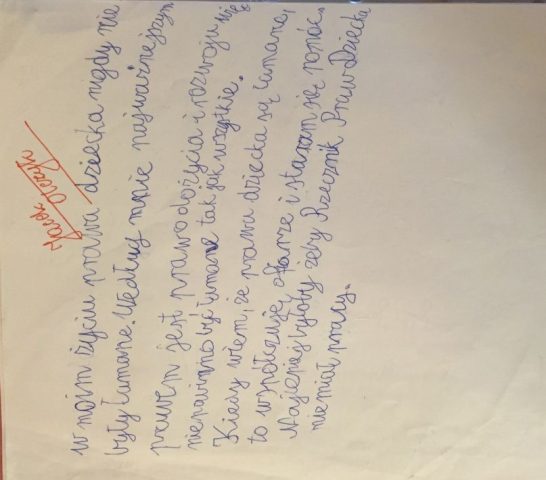 w moim życiu prawa dziecka nigdy nie
były łamane. Według mnie najważniejszym
prawem jest prawo do życia i rozwoju nie
niepowinno być łamane tak jak wszytkie.
Kiedy wiem, że prawa dziecka są łamane,
to współczuję ofiarze i staram się pomóc.
Najlepiej byłoby żeby Rzecznik Praw Dziecka
nie miał pracy.